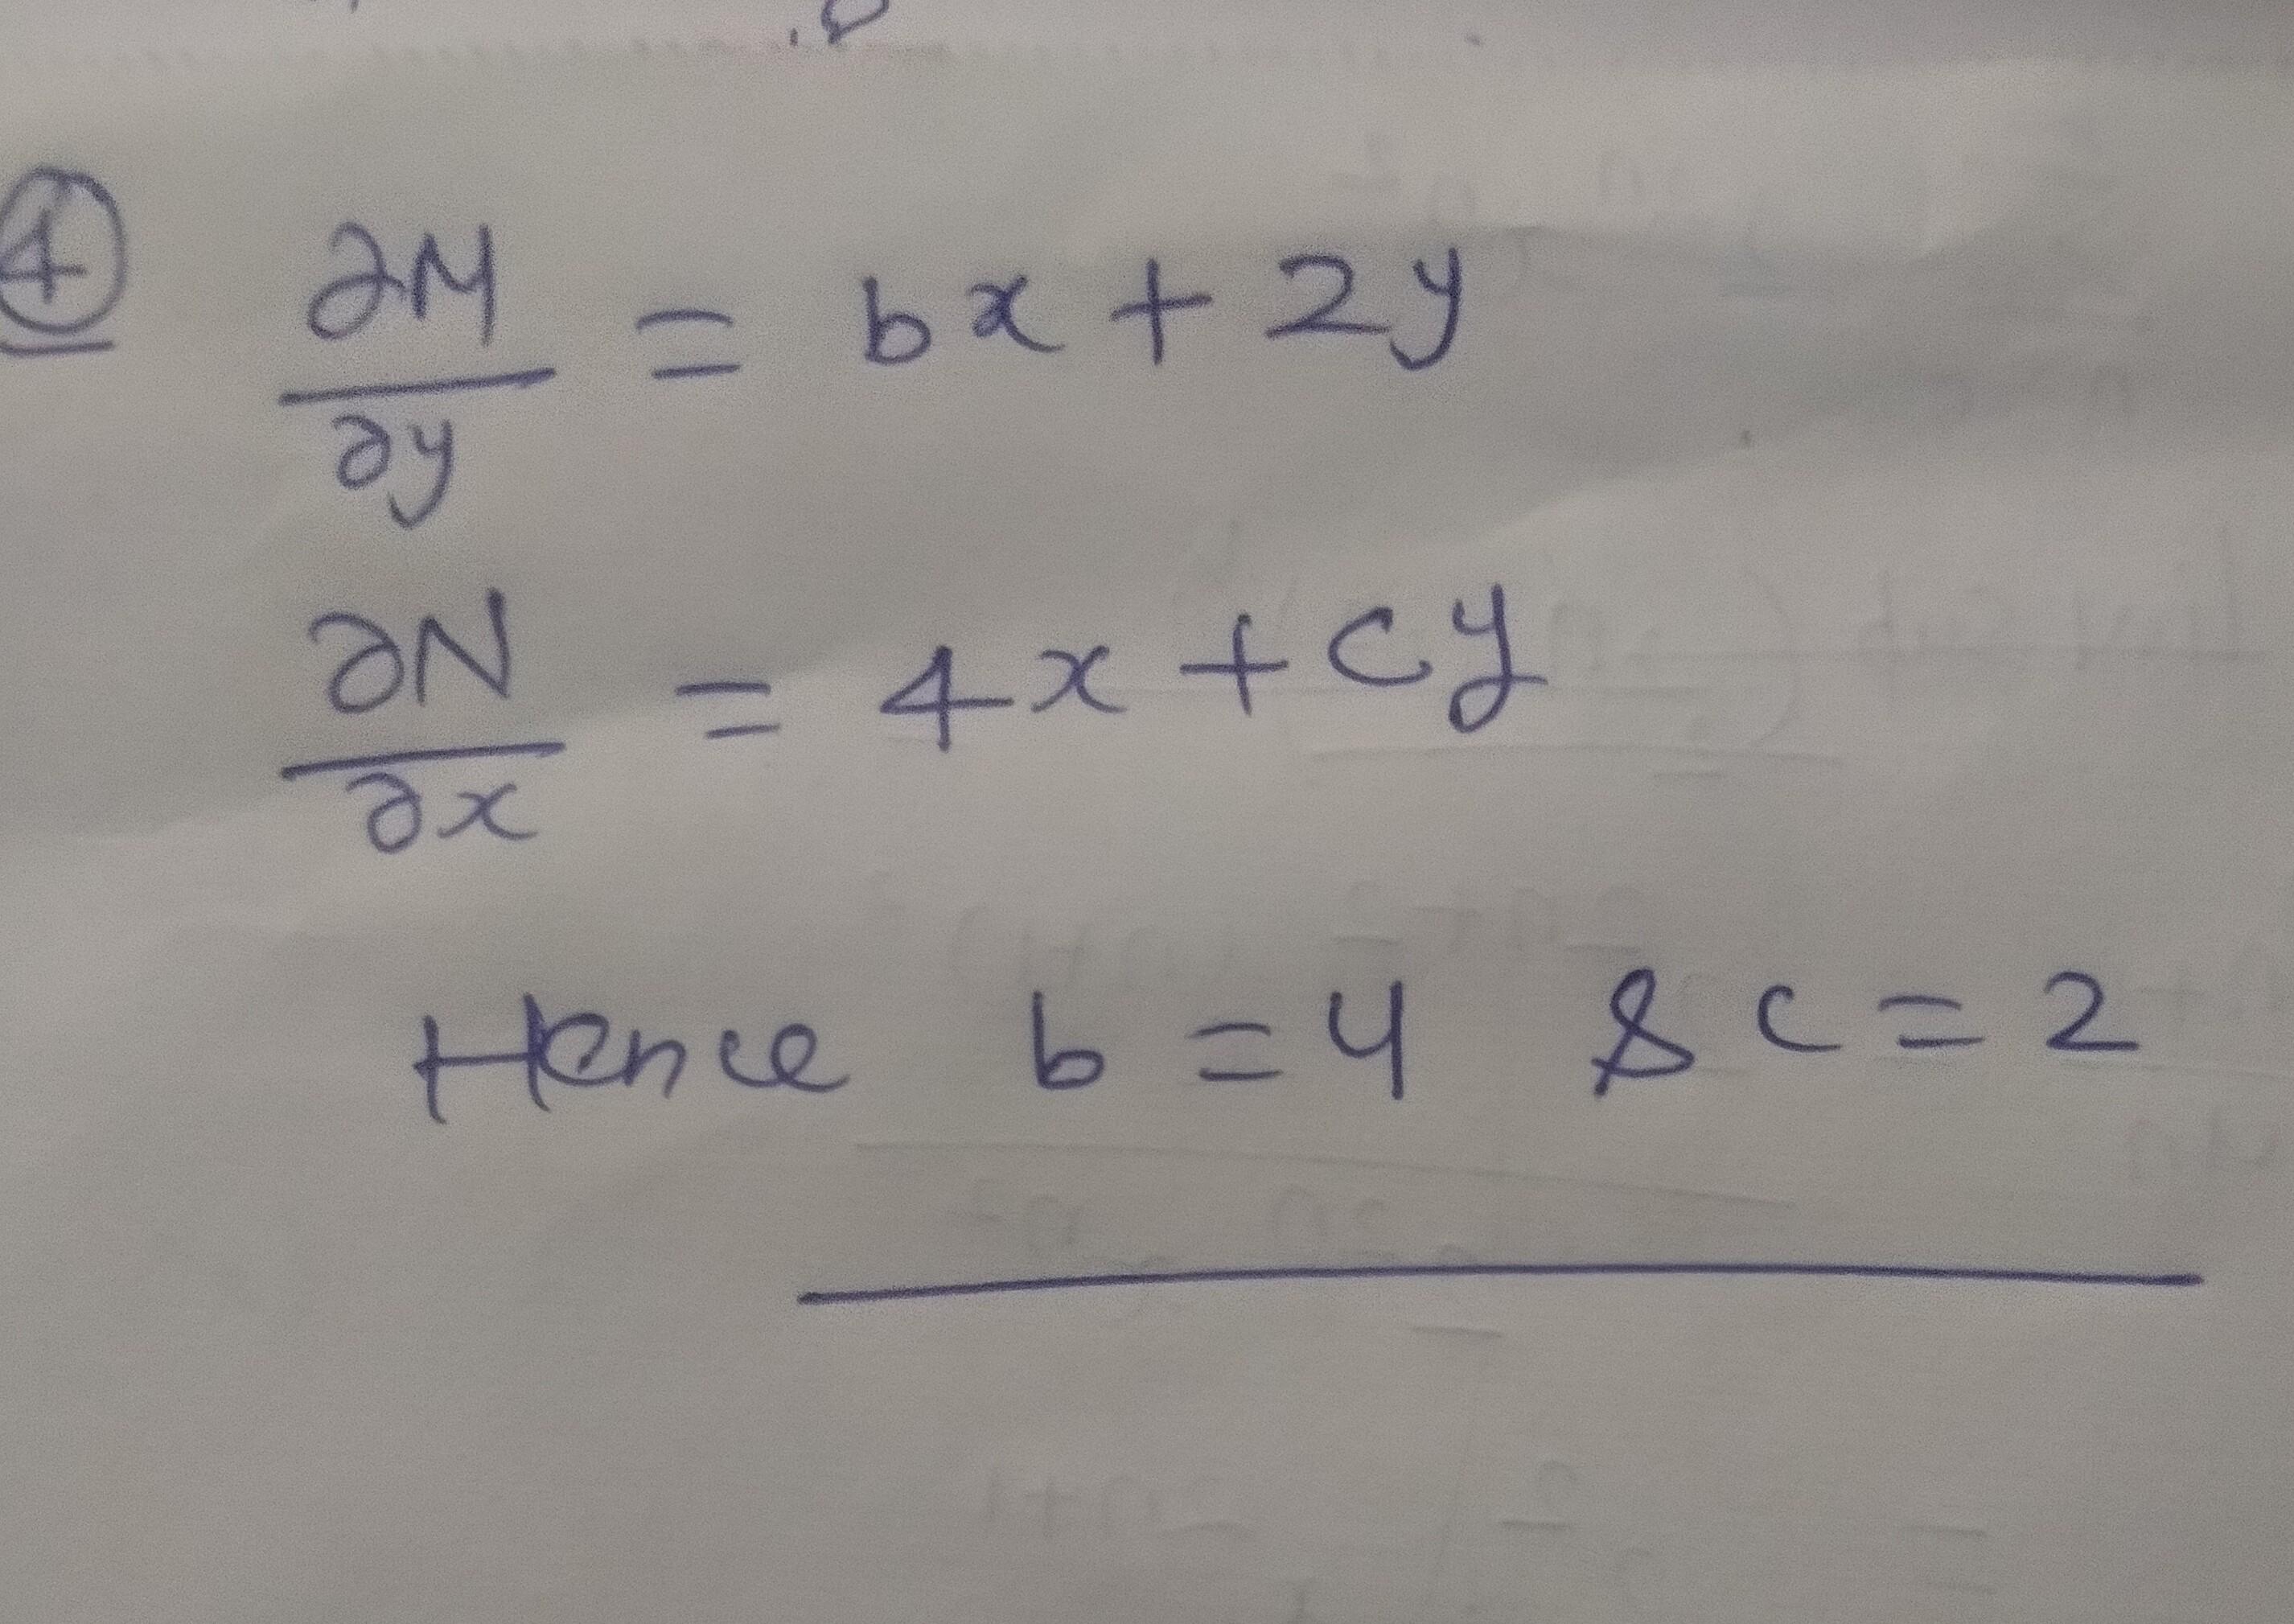 ④ ∂M/∂y = bx + 2y
∂N/∂x = 4x + cy
Hence b = 4 & c = 2